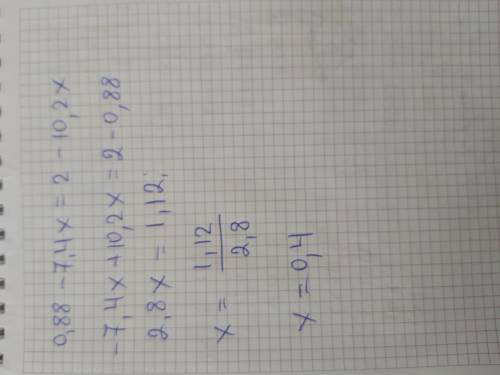 0,88 - 7,4x = 2 - 10,2x
- 7,4x + 10,2x = 2 - 0,88
2,8x = 1,12;
x = 1,12 / 2,8
x = 0,4